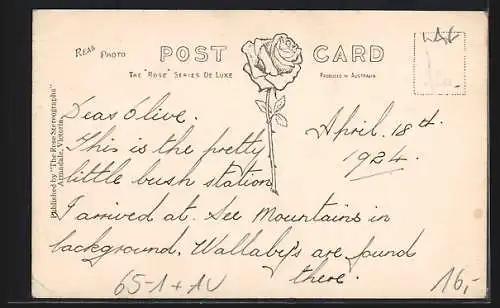 REAL PHOTO
POST CARD
THE "ROSE" SERIES DE LUXE
PRODUCED IN AUSTRALIA
Published by "The Rose Stereographs"
Armadale, Victoria
Dear Olive.
April. 18th.
1924.
This is the pretty
little bush station
I arrived at. See Mountains in
background. Wallaby's are found
there.
65-1 + AU
16,-